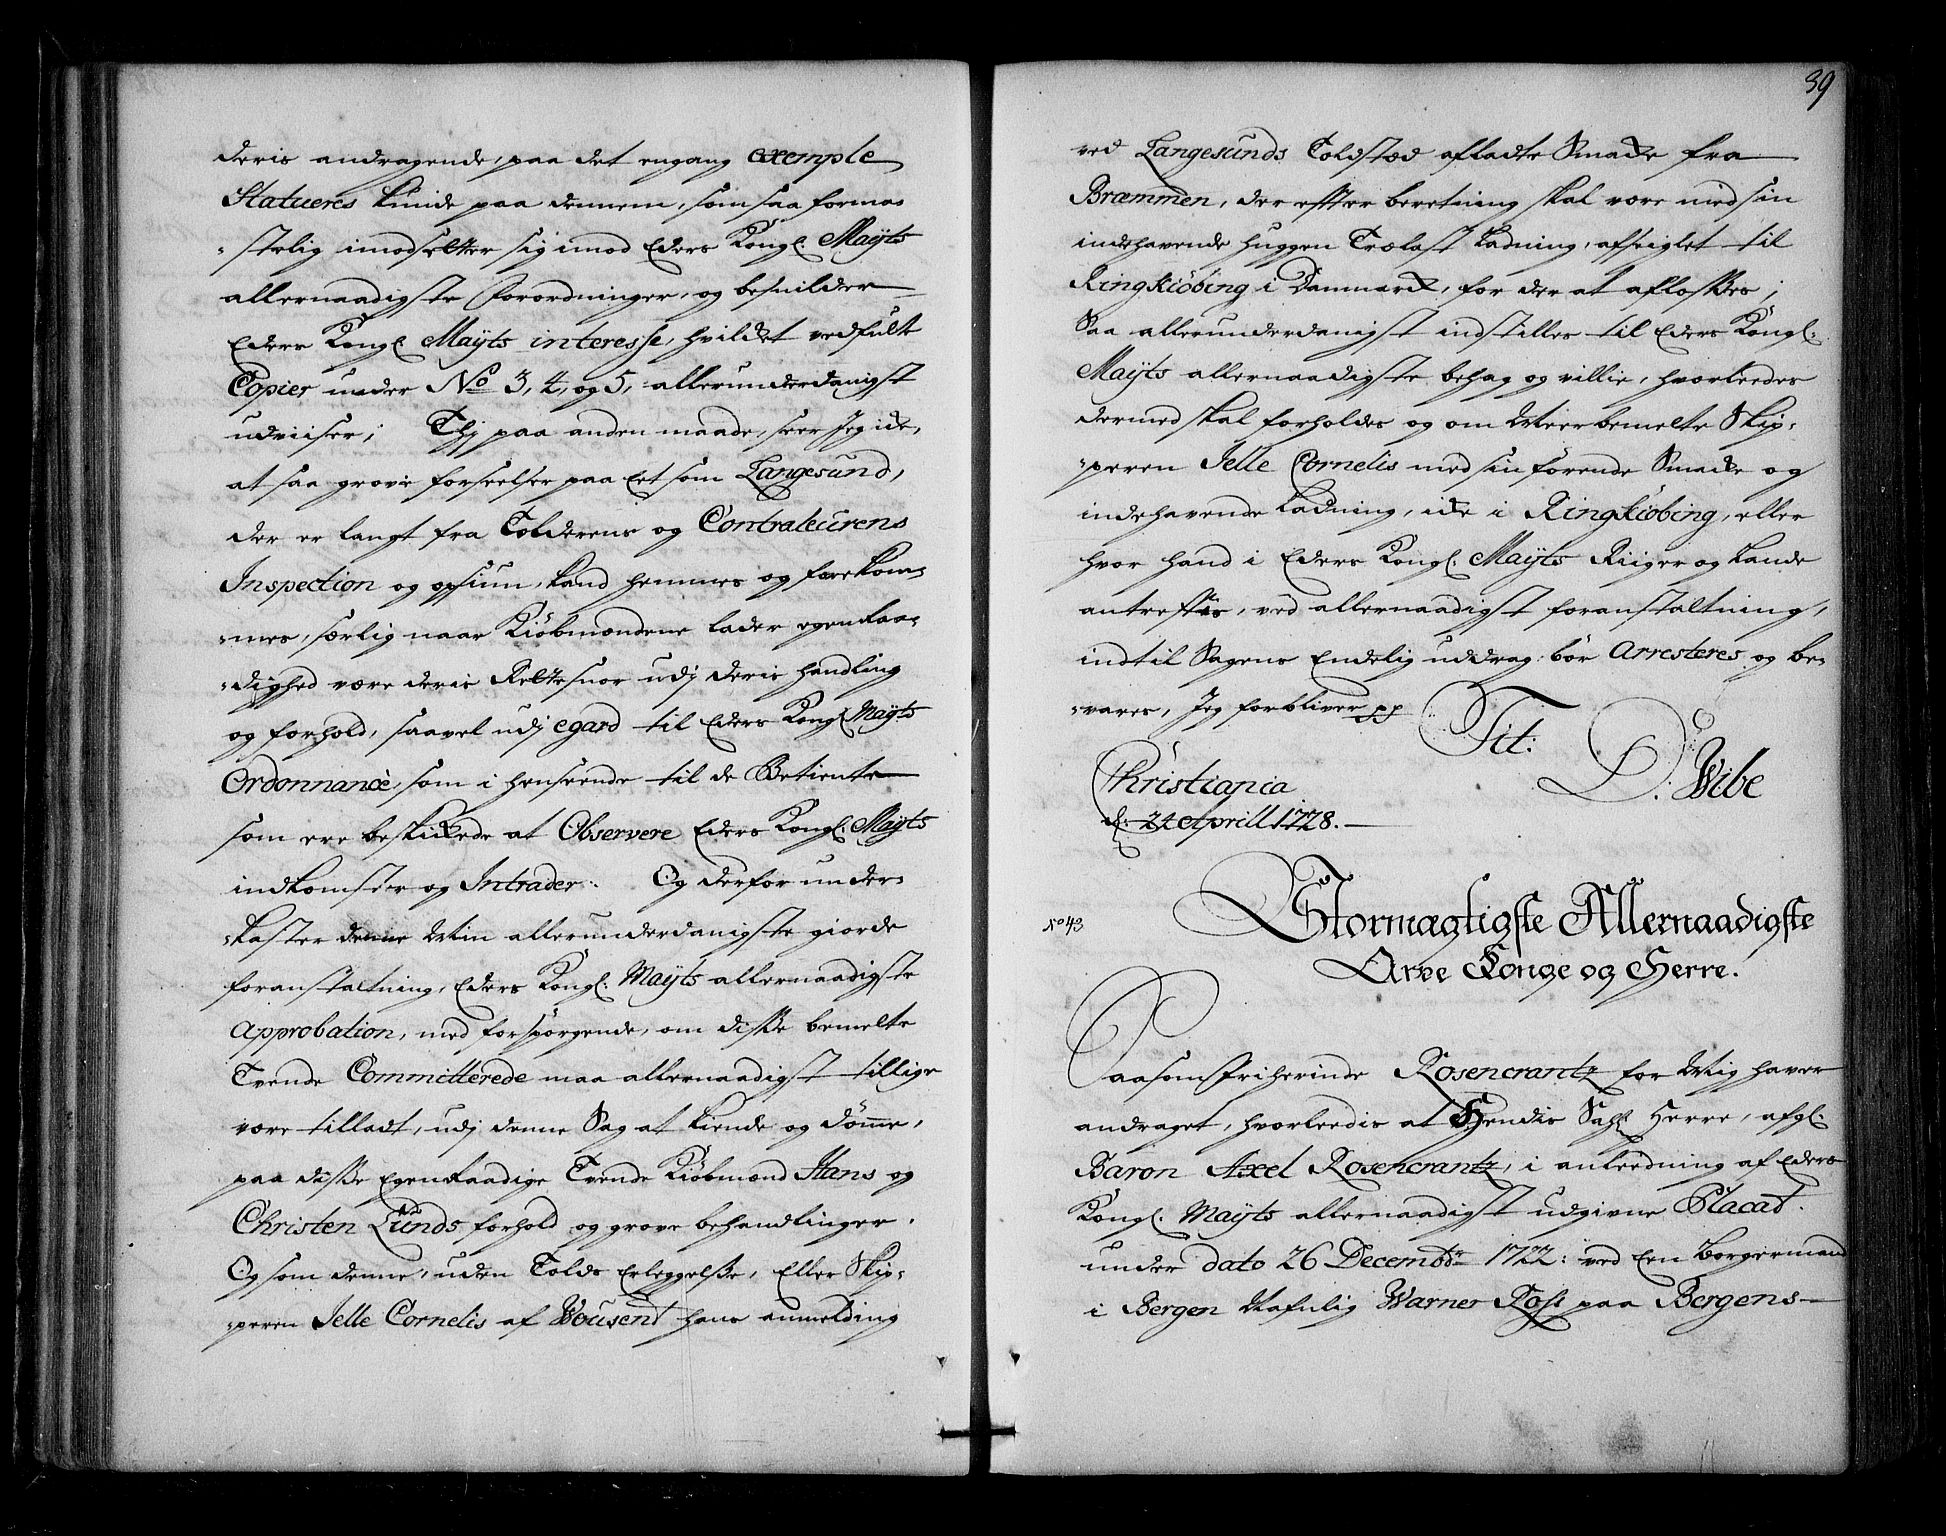 deris andragende, paa det engang exemple
Statueres kunde paa dennem, som saa formas
-stelig imodsetter sig imod Eders Kongl. Mayts
allernaadigste forordninger, og besnilder
Eders Kongl Mayts interesse, hvilket vedfult
Copier under No 3, 4, og 5, allerunderdanigst
udviiser; Thj paa anden maade, seer Jeg icke,
at saa grove forseelser paa Eet som Langesund,
der er langt fra Tolderens og Contraleurens
Inspection og opsiun, kand hemmes og forekom-
-mes, særlig naar Kiøbmændene lader egenraa-
-dighed være deris Rettesnor udj deris handling
og forhold, saavel udj egard til Eders Kongl Mayts
Ordonnance, som i henseende til de Betiente
som ere beskickede at Observere Eders Kongl. Mayts
indkomster og Intrader. Og derfor under-
-kaster denne Min allerunderdanigste giorde
foranstaltning, Eders Kongl. Mayts allernaadigste
approbation, med forspørgende, om disse bemelte
Tvende Committerede maa allernaadigst tillige
være tilladt, udj denne Sag at kiende og dømme,
paa disse Egenraadige Tvende Kiøbmænd Hans og
Christen Lunds forhold og grove behandlinger.
Og som denne, uden Tolds Erleggelse, Eller Skip-
-peren Jelle Cornelis af Wousend hans anmelding
39
ved Langesunds Toldsted afladte Smacke fra
Bræmmen, der efter beretning skal være med sin
indehavende huggen Trælast Ladning, afseiglet til
Ringkiöbing i Danmarck, for der at aflosses;
Saa allerunderdanigst indstilles til Eders Kongl.
Mayts allernaadigste behag og villie, hvorleedes
dermed skal forholdes og om Meerbemelte Skip-
-peren Jelle Cornelis med sin førende Smacke og
indehavende Ladning, icke i Ringkiöbing, eller
hvor hand i Eders Kongl. Mayts Riiger og Lande
antreffes, ved allernaadigst foranstaltning,
indtil Sagens Endelig uddrag bør Arresteres og be-
-vares, Jeg forbliver pp
Tit:
D: Wibe
Christiania
d. 24 Aprill 1728.
No 43
Stormægtigste Allernaadigste
Arve Konge og Herre.
Paasom Friherinde Rosencrantz for Mig haver
andraget, hvorleedis at Hendis Sahl Herre, afgl.
Baron Axel Rosencrantz, i anleedning af Eders
Kongl. Mayts allernaadigst udgivne Placat
under dato 26 Decembr 1722: ved Een Borgermand
i Bergen Nafnlig Warner Rosi paa Bergens